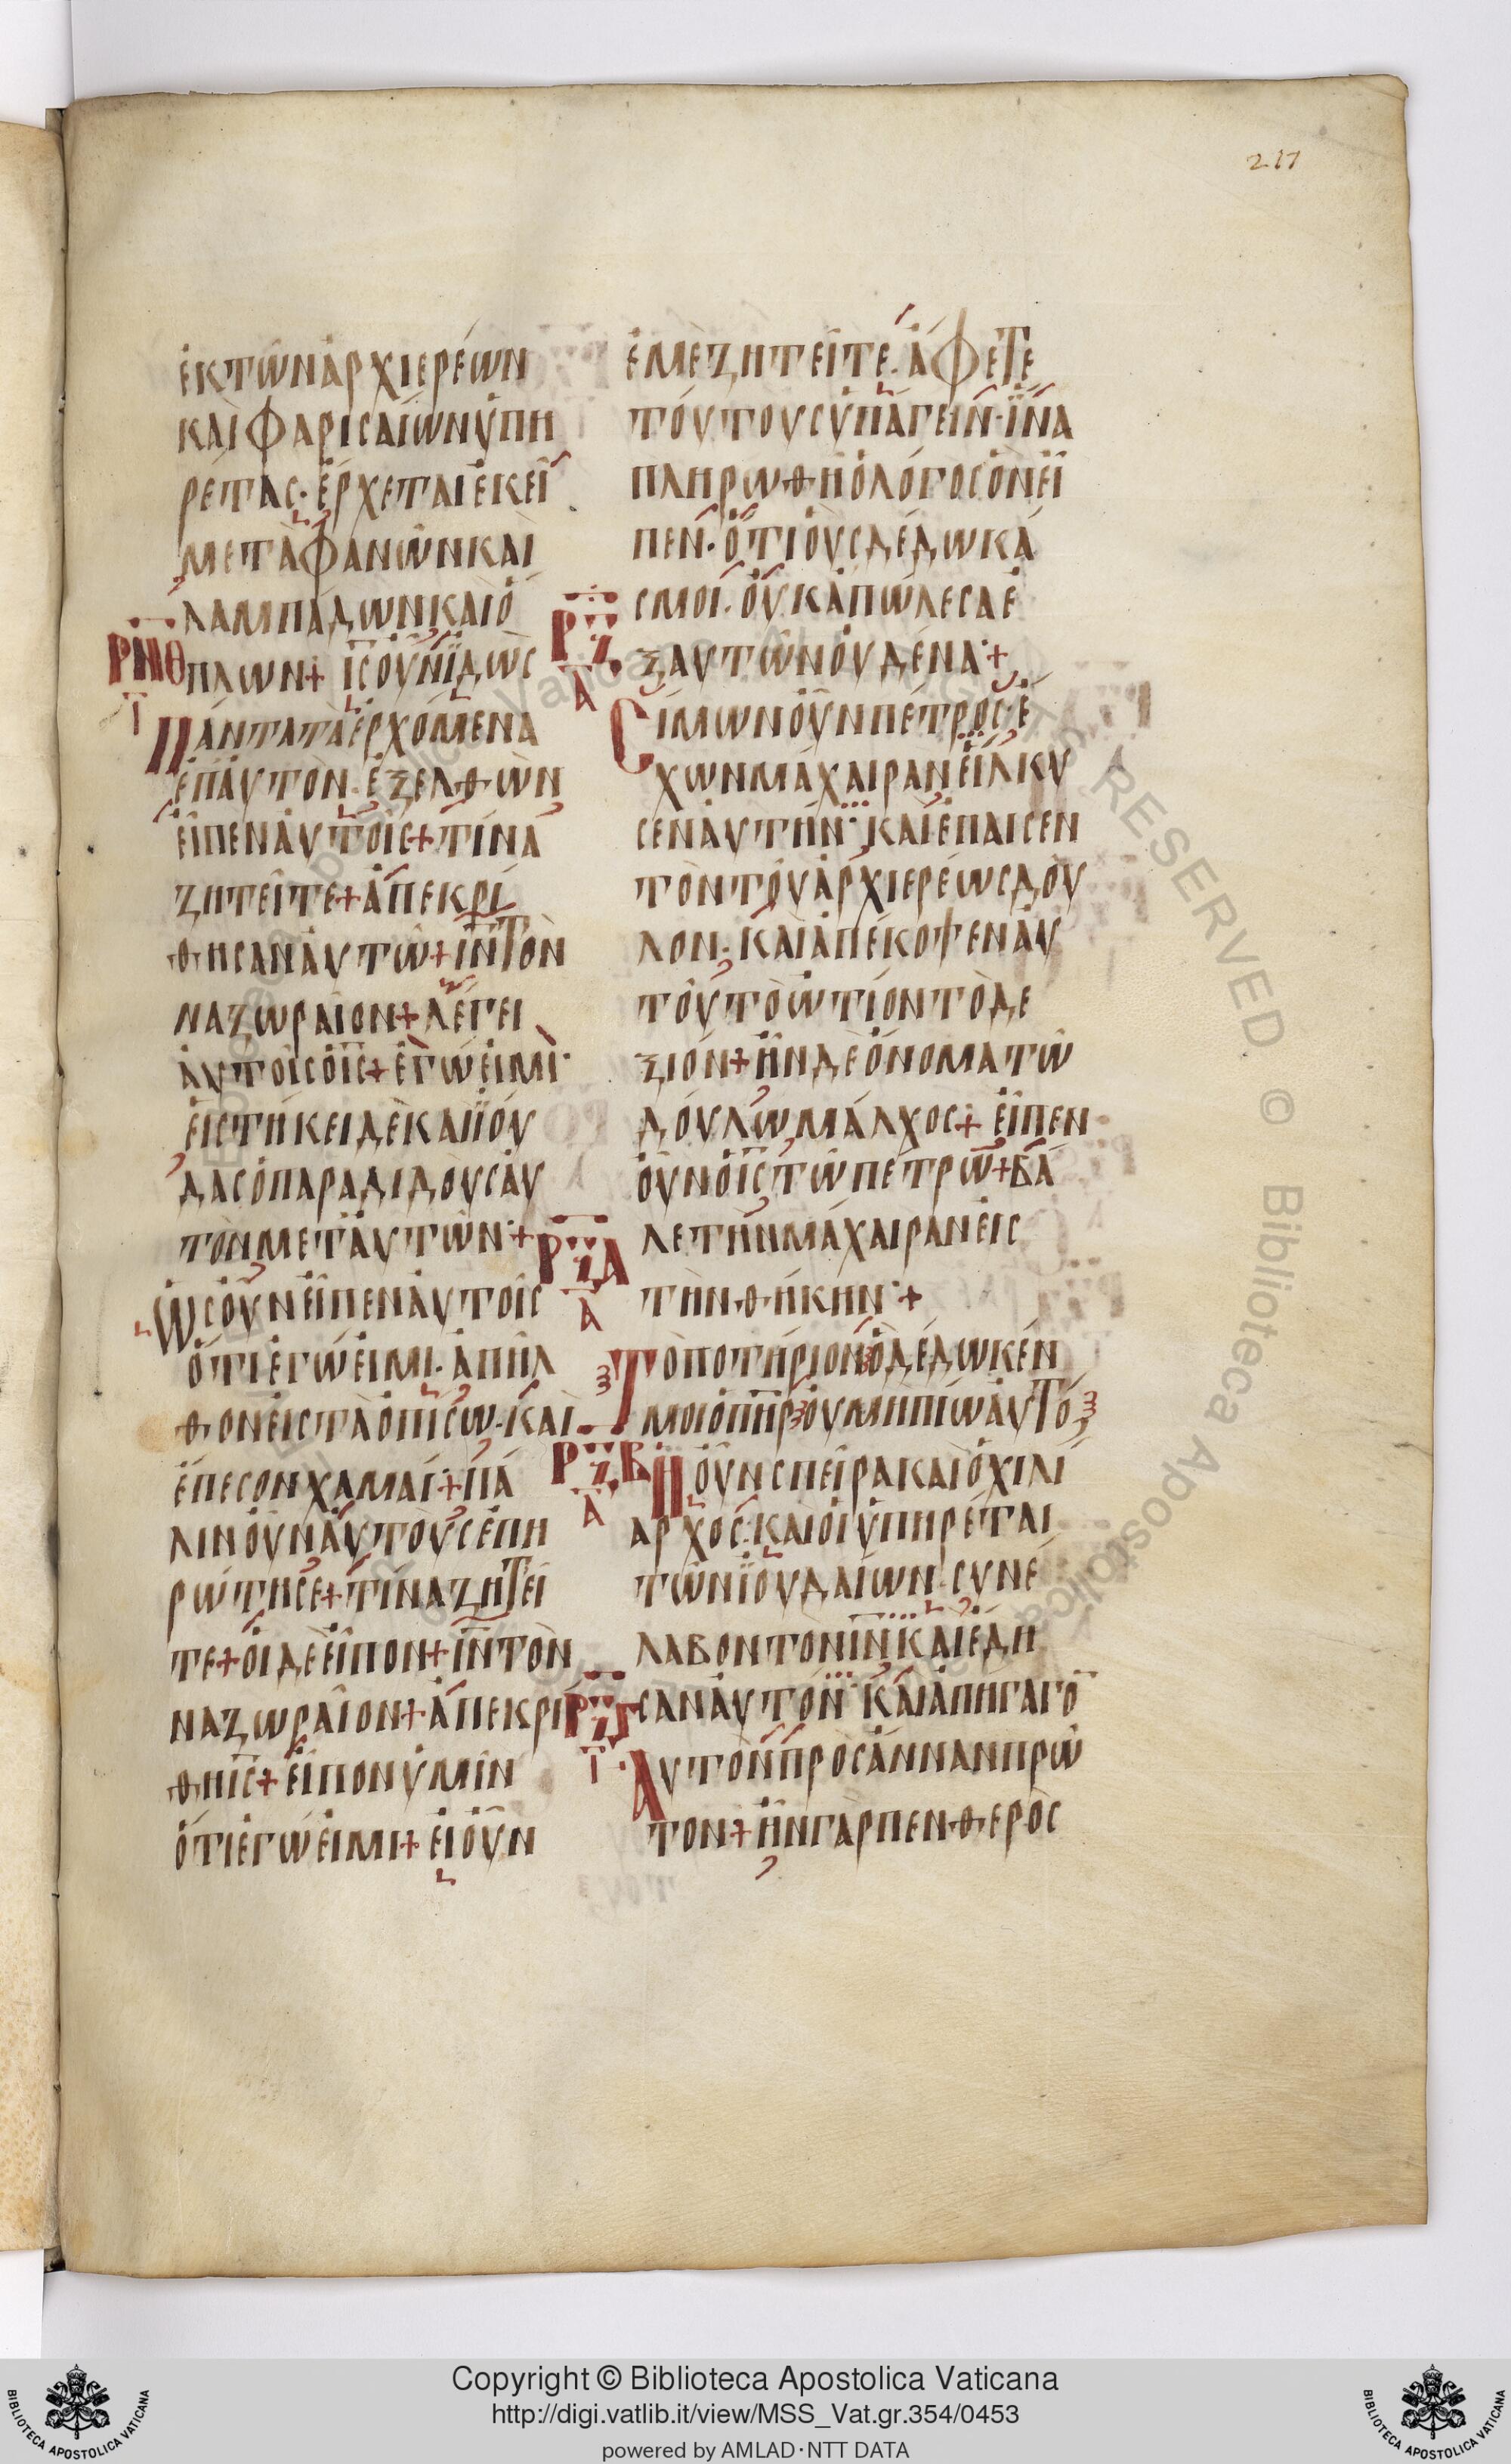 217
ἐκτῶνἀρχιερέων
καὶφαρισαίωνὑπη
ρέτας·ἔρχεταιἐκεῖ
μετὰφανῶνκαὶ
λαμπάδωνκαὶὅ
ΡΝΘ
πλων+ ΙΣοὖνϊδὼς
Γ
Πάντατὰἐρχόμενα
ἐπἀυτὸν·ἐξελθὼν
εἶπεναὐτοῖς+τίνα
ζητεῖτε+ἀπεκρί
θησαναὐτῶ+ΙΝτὸν
ναζωραῖον+λέγει
αὐτοῖςὁΙΣ+ἐγώεἰμι·
εἱστήκειδὲκαὶϊού
δασὁπαραδιδοὺςαὐ
τὸνμετἀυτῶν·+
Ὡςοὖνεἶπεναὐτοῖς
ὅτιἐγώεἰμι·ἀπῆλ
θονεἰςτὰὀπίσω·καὶ
ἔπεσονχαμαί·+πά
λινοὖναὐτοὺςἐπη
ρώτησε+τίναζητεῖ
τε+οἱδὲεἶπον+ΙΝτὸν
ναζωραῖον+ἀπεκρί
θηΙΣ+εἶπονὑμῖν
ὅτιἐγώεἰμι+εἰοὖν
ἐμὲζητεῖτε·ἄφετε
τούτουςὑπάγειν·ἵνα
πληρωθῆὁλόγοςὃνεἶ
πεν·ὅτιοὓςδέδωκά
ςμοι·οὐκἀπώλεσαἐ
ΡΞ
ξαυτῶνοὐδένα·+
Α
Σίμωνοὖνπέτροςἔ
χωνμάχαιρανεἵλκυ
σεναὐτήν·καὶἔπαισεν
τὸντοῦἀρχιερέωςδοῦ
λον·καὶἀπέκοψεναὐ
τοῦτὸὠτίοντὸδε
ξιόν+ἦνδὲὄνοματῶ
δούλωμάλχος+εἶπεν
οὖνὁΙΣτῶπέτρω+βά
λετὴνμάχαιρανεἰς
ΡΞΑ
τὴνθήκην·+
Α
Τὸποτήριονὃδέδωκέν
μοιὁΠΗΡοὐμὴπίωαὐτό
ΡΞΒ
Ἡοὖνσπεῖρακαὶὁχιλί
Α
αρχος·καὶοἱὑπηρέται
τῶνϊουδαίων·συνέ
λαβοντὸνΙΝκαὶἔδη
ΡΞΓ
σαναὐτόν·καὶἀπήγαγο̅
Γ
Αὐτὸνπρὸςἄννανπρῶ
τον+ἦνγὰρπενθερὸς
Copyright © Biblioteca Apostolica Vaticana
http://digi.vatlib.it/view/MSS_Vat.gr.354/0453
powered by AMLAD·NTT DATA
BIBLIOTECA APOSTOLICA VATICANA
BIBLIOTECA APOSTOLICA VATICANA